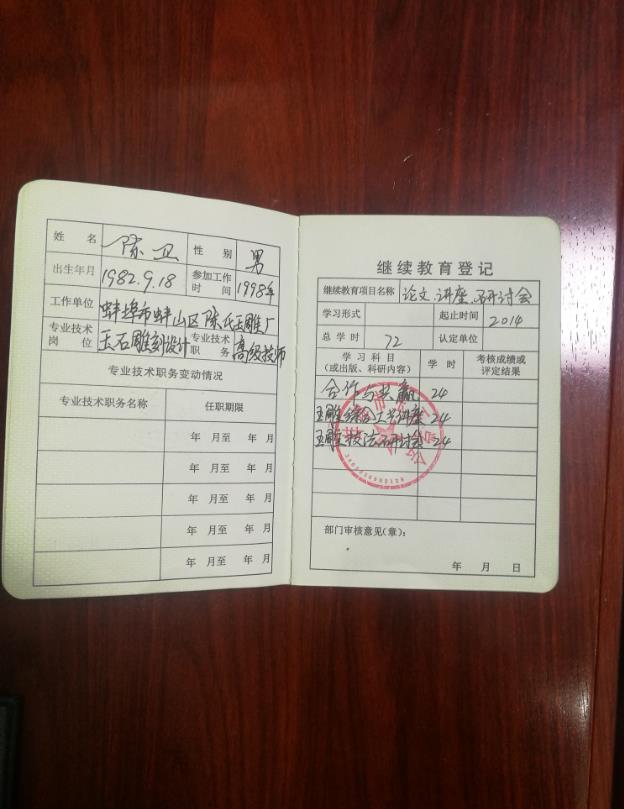 姓 名 陈卫 性 别 男
出生年月 1982.9.18 参加工作时间 1998年
工作单位 蚌埠市蚌山区陈氏玉雕厂
专业技术岗位 玉石雕刻设计 专业技术职务 高级技师
专业技术职务变动情况
专业技术职务名称 任职期限
年 月至 年 月
年 月至 年 月
年 月至 年 月
年 月至 年 月
年 月至 年 月
继续教育登记
继续教育项目名称 论文.讲座.研讨会
学习形式 起止时间 2014
总 学 时 72 认定单位
学 习 科 目 (或出版、科研内容) 学 时 考核成绩或评定结果
合作与共赢 24
玉雕 工艺讲座 24
玉雕技法研讨会 24
部门审核意见(章):
年 月 日